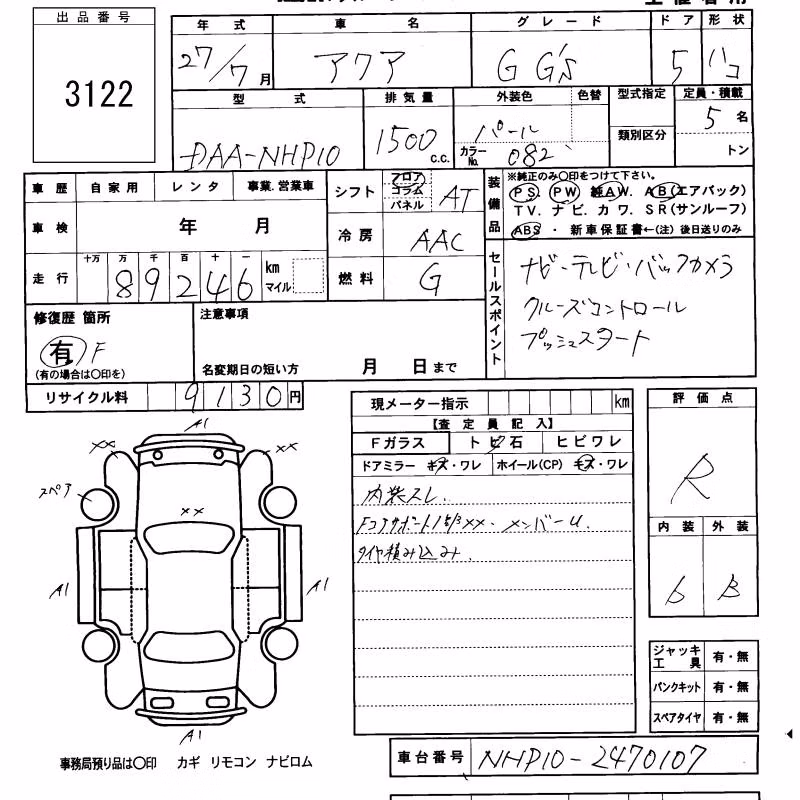 出品番号
3122
年式 車名 グレード ドア 形状
27/7月 アクア G G's 5 ハコ
型式 排気量 外装色 色替 型式指定 定員・積載
DAA-NHP10 1500 c.c. パール カラーNo. 082 類別区分 5名 トン
車歴 自家用 レンタ 事業.営業車
シフト フロア コラム パネル AT
装備品 ※純正のみ〇印をつけて下さい。
PS. PW 純AW. AB(エアバック)
TV. ナビ. カワ. SR(サンルーフ)
ABS ・ 新車保証書←(注) 後日送りのみ
車検 年 月
冷房 AAC
走行 十万 万 千 百 十 一 km マイル
89246
燃料 G
セールスポイント
ナビ・テレビ・バックカメラ
クルーズコントロール
プッシュスタート
修復歴 箇所
有 F
(有の場合は〇印を)
注意事項
名変期日の短い方 月 日まで
リサイクル料 9130円
現メーター指示 km
【査定員記入】
Fガラス トビ石 ヒビワレ
ドアミラー キズ・ワレ ホイール(CP) キズ・ワレ
内装スレ.
FコアサポートXX・メンバーU.
タイヤ積み込み.
評価点
R
内装 外装
6 B
A1
XX XX
スペア
XX
A1 A1
A1
ジャッキ 工具 有・無
パンクキット 有・無
スペアタイヤ 有・無
事務局預り品は〇印 カギ リモコン ナビロム
車台番号 NHP10-2470107